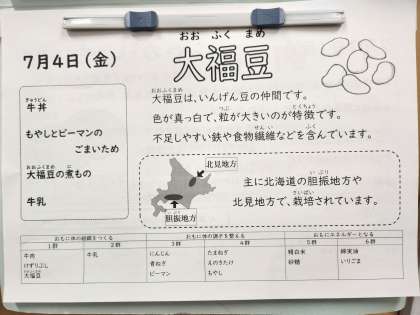 7月4日(金)
おお ふく まめ
大福豆
ぎゅうどん
牛丼
もやしとピーマンの
ごまいため
おおふくまめ に
大福豆の煮もの
牛乳
おおふくまめ
大福豆は、いんげん豆の仲間です。
つぶ とくちょう
色が真っ白で、粒が大きいのが特徴です。
せんい ふく
不足しやすい鉄や食物繊維などを含んでいます。
北見地方
いぶり
胆振地方
いぶり
主に北海道の胆振地方や
さいばい
北見地方で、栽培されています。
おもに体の組織をつくる おもに体の調子を整える おもにエネルギーとなる
1群 2群 3群 4群 5群 6群
牛肉 牛乳 にんじん たまねぎ 精白米 綿実油
けずりぶし 青ねぎ えのきたけ 砂糖 いりごま
大福豆 ピーマン もやし